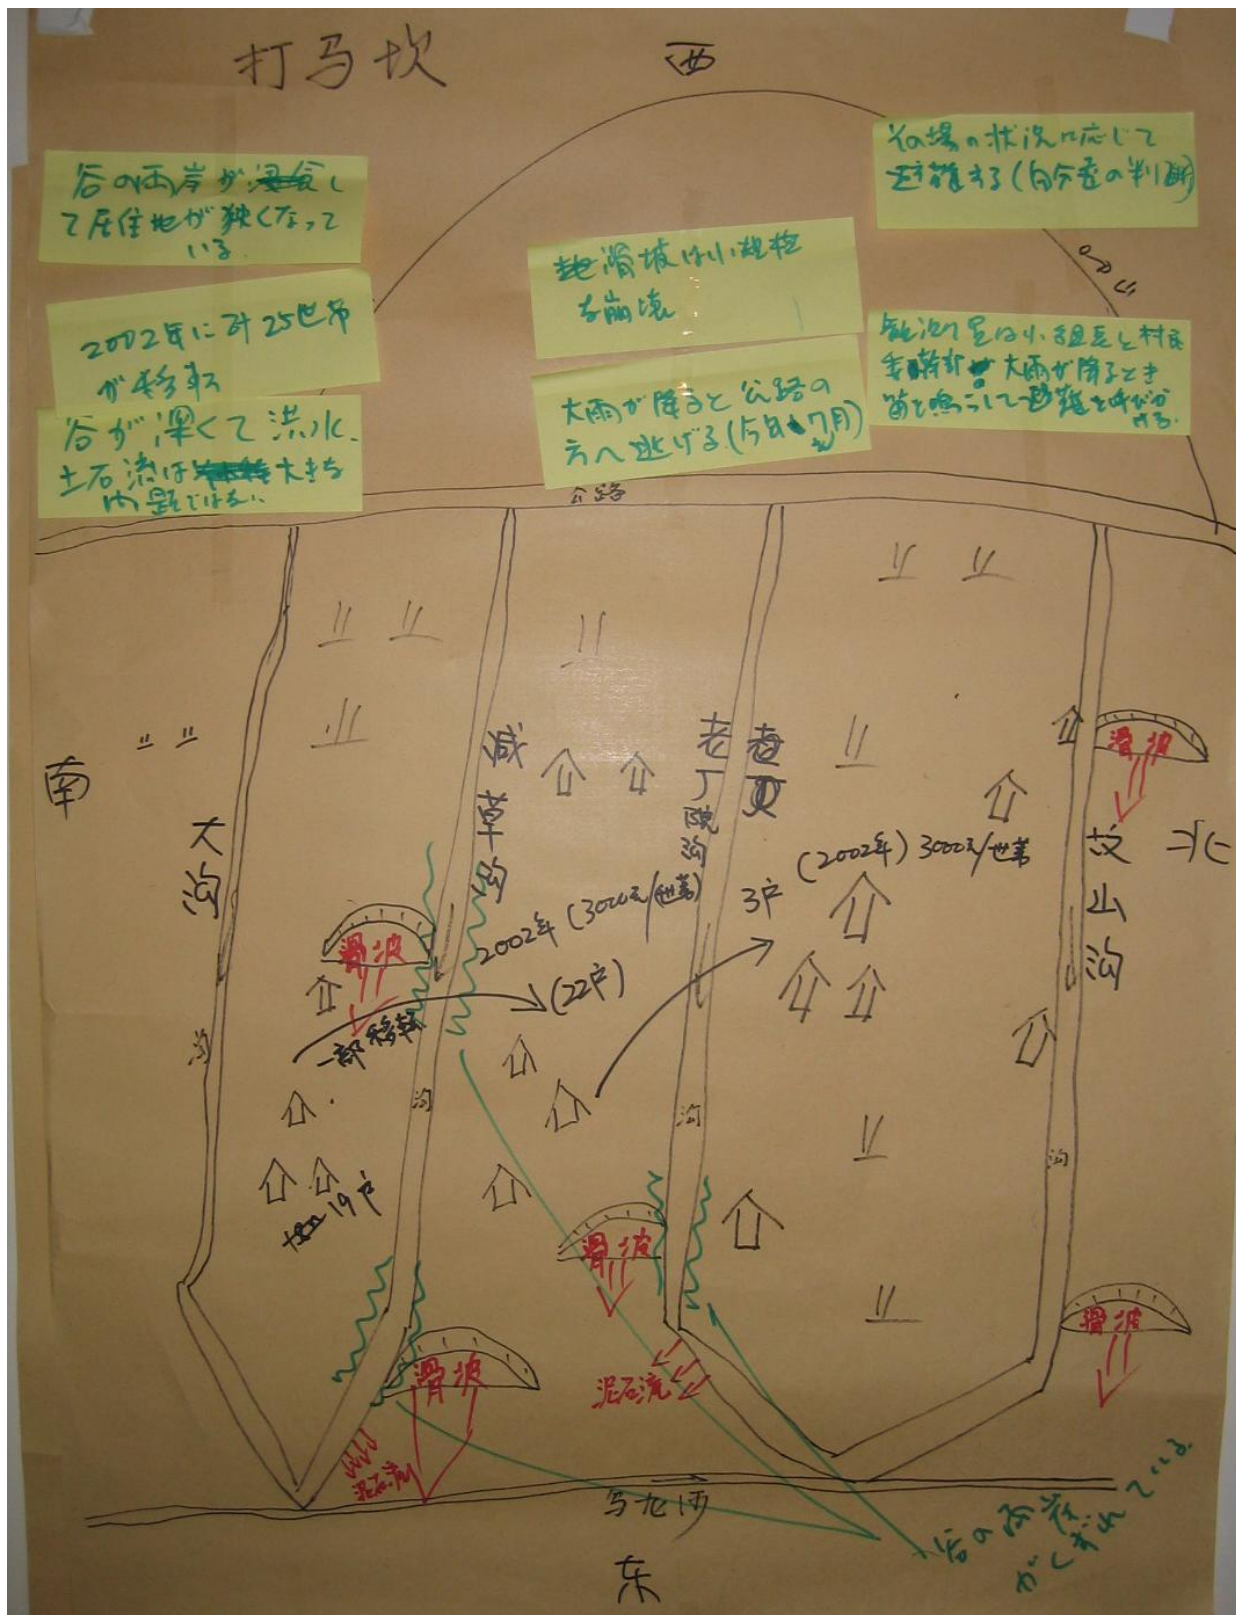 打马坎
西
谷の両岸が浸食し
て居住地が狭くなって
いる.
2002年に計25世帯
が移転
谷が深くて洪水、
土石流は 大きな
問題ではない
地滑坡は小規模
な崩壊
大雨が降ると公路の
方へ逃げる(今年 7月)
その場の状況に応じて
避難する(自分達の判断)
観測員は小組長と村民
委幹部 大雨が降るとき
笛を鳴らして避難を呼びか
ける.
公路
南
大沟
减草沟
老丁院沟
故山沟
北
滑波
(2002年)3000元/世帯
3户
2002年(3000元/世帯)
滑波
(22户)
一部移転
沟
沟
沟
沟
19户
滑波
滑波
滑波
泥石流
泥石流
谷の両岸
がくずれている.
东